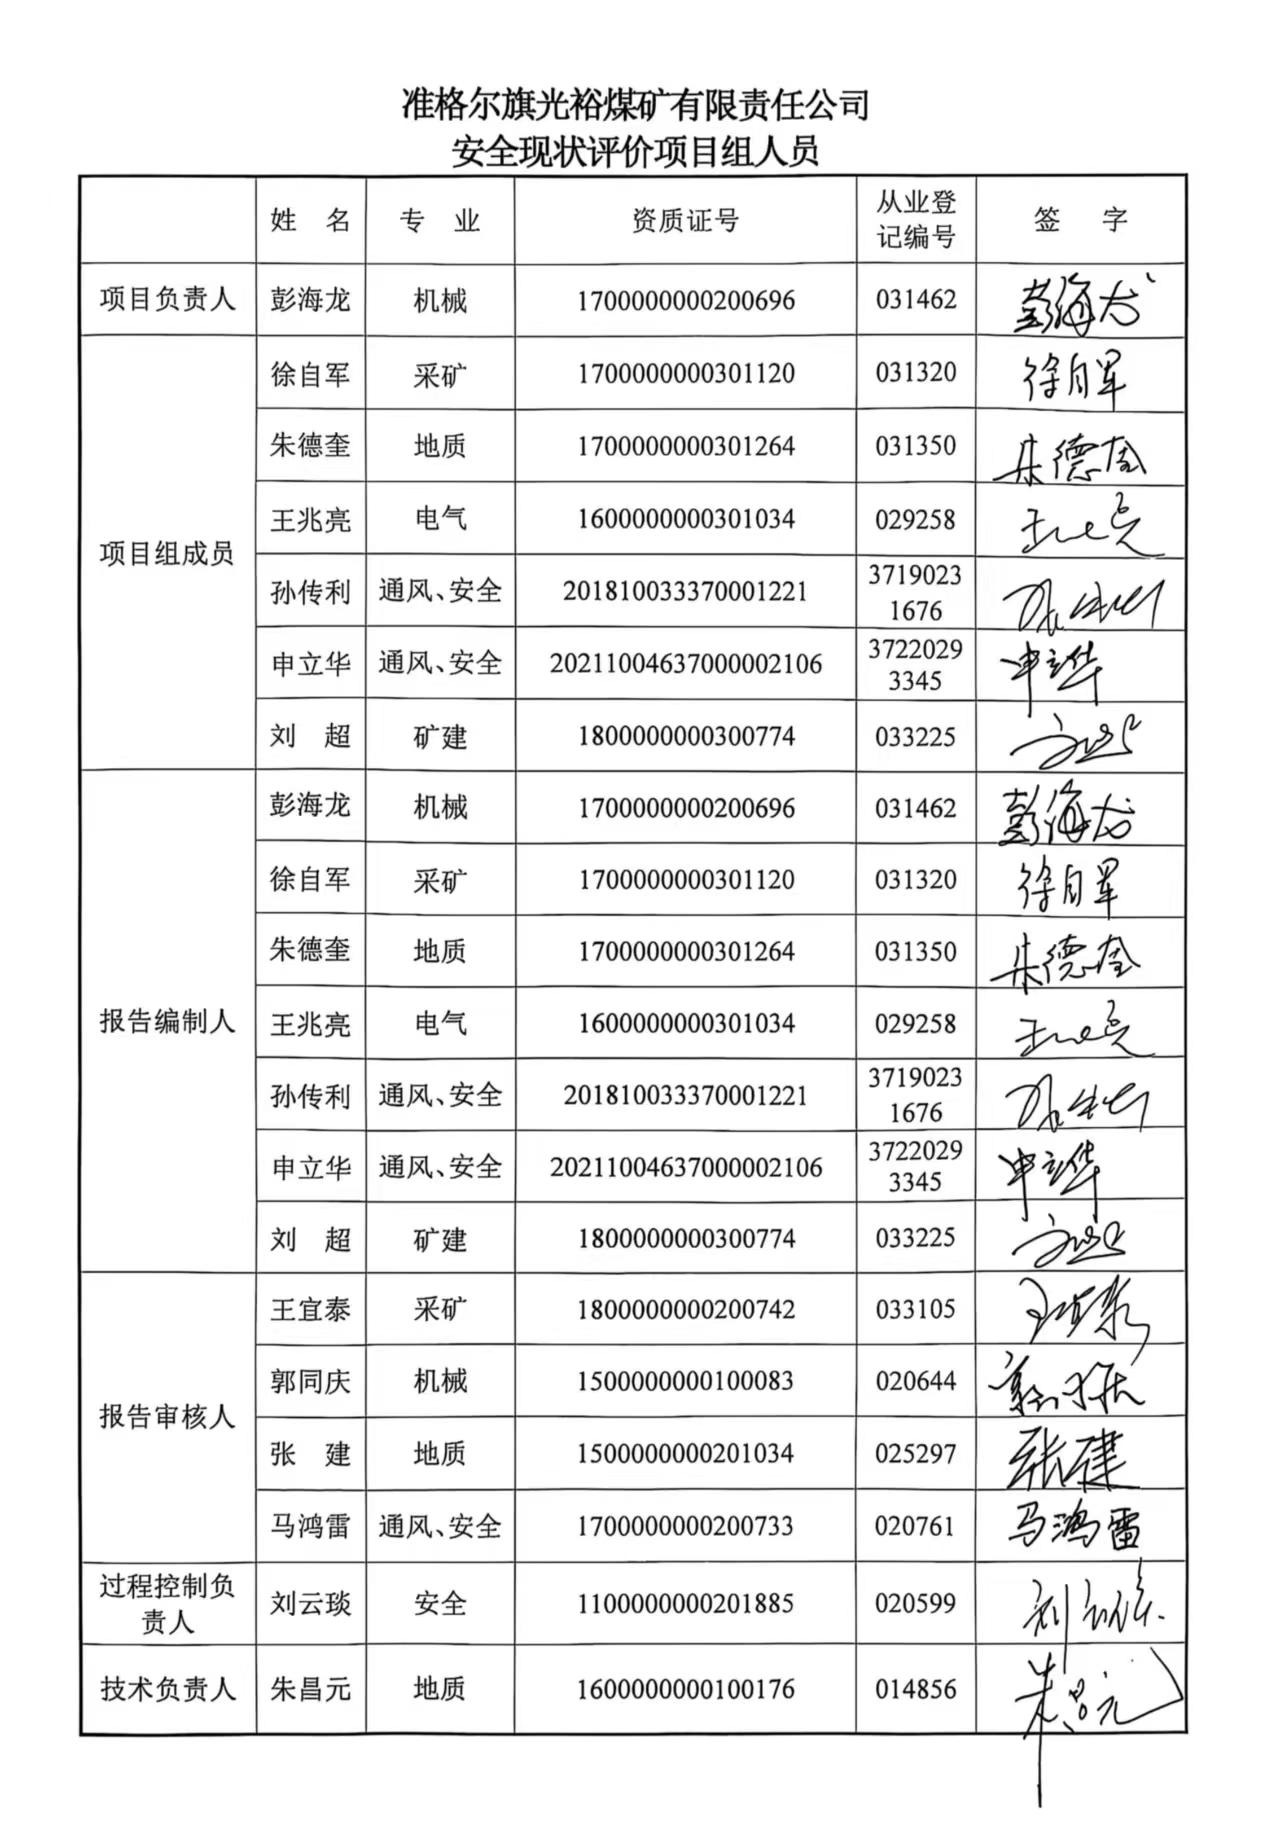 准格尔旗光裕煤矿有限责任公司
安全现状评价项目组人员
姓 名 专 业 资质证号 从业登记编号 签 字
项目负责人 彭海龙 机械 1700000000200696 031462 彭海龙
项目组成员 徐自军 采矿 1700000000301120 031320 徐自军
朱德奎 地质 1700000000301264 031350 朱德奎
王兆亮 电气 1600000000301034 029258 王兆亮
孙传利 通风、安全 201810033370001221 37190231676 孙传利
申立华 通风、安全 20211004637000002106 37220293345 申立华
刘 超 矿建 1800000000300774 033225 刘超
报告编制人 彭海龙 机械 1700000000200696 031462 彭海龙
徐自军 采矿 1700000000301120 031320 徐自军
朱德奎 地质 1700000000301264 031350 朱德奎
王兆亮 电气 1600000000301034 029258 王兆亮
孙传利 通风、安全 201810033370001221 37190231676 孙传利
申立华 通风、安全 20211004637000002106 37220293345 申立华
刘 超 矿建 1800000000300774 033225 刘超
报告审核人 王宜泰 采矿 1800000000200742 033105 王宜泰
郭同庆 机械 1500000000100083 020644 郭同庆
张 建 地质 1500000000201034 025297 张建
马鸿雷 通风、安全 1700000000200733 020761 马鸿雷
过程控制负责人 刘云琰 安全 1100000000201885 020599 刘云琰
技术负责人 朱昌元 地质 1600000000100176 014856 朱昌元